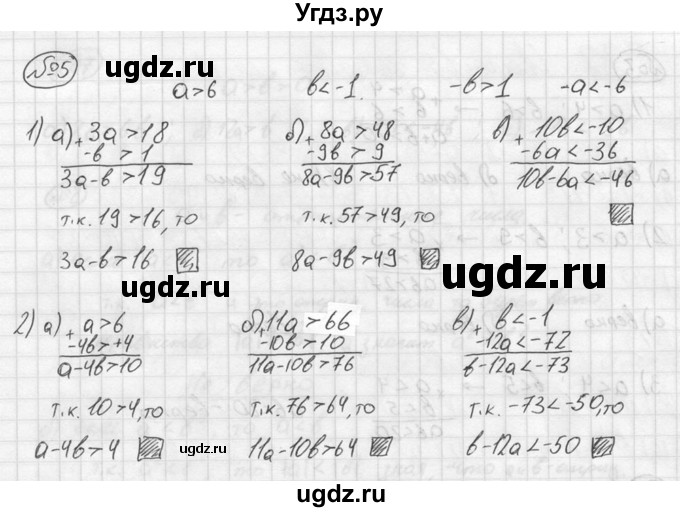 Угдз.ру
№5
a>6 b<-1 -b>1 -a<-6
ugdz.ru
1) а) + 3a>18
-b >1
3a-b>19
т.к. 19>16, то
3a-b>16
б) + 8a>48
-9b>9
8a-9b>57
т.к. 57>49, то
8a-9b>49
в) + 10b<-10
-6a<-36
10b-6a<-46
ugdz.ru
ugdz.ru
2) а) + a>6
-4b>+4
a-4b>10
т.к. 10>4, то
a-4b>4
б) + 11a>66
-10b>10
11a-10b>76
т.к. 76>64, то
11a-10b>64
в) + b<-1
-12a<-72
b-12a<-73
т.к. -73<-50, то
b-12a<-50
ugdz.ru
ugdz.ru
ugdz.ru
ugdz.ru